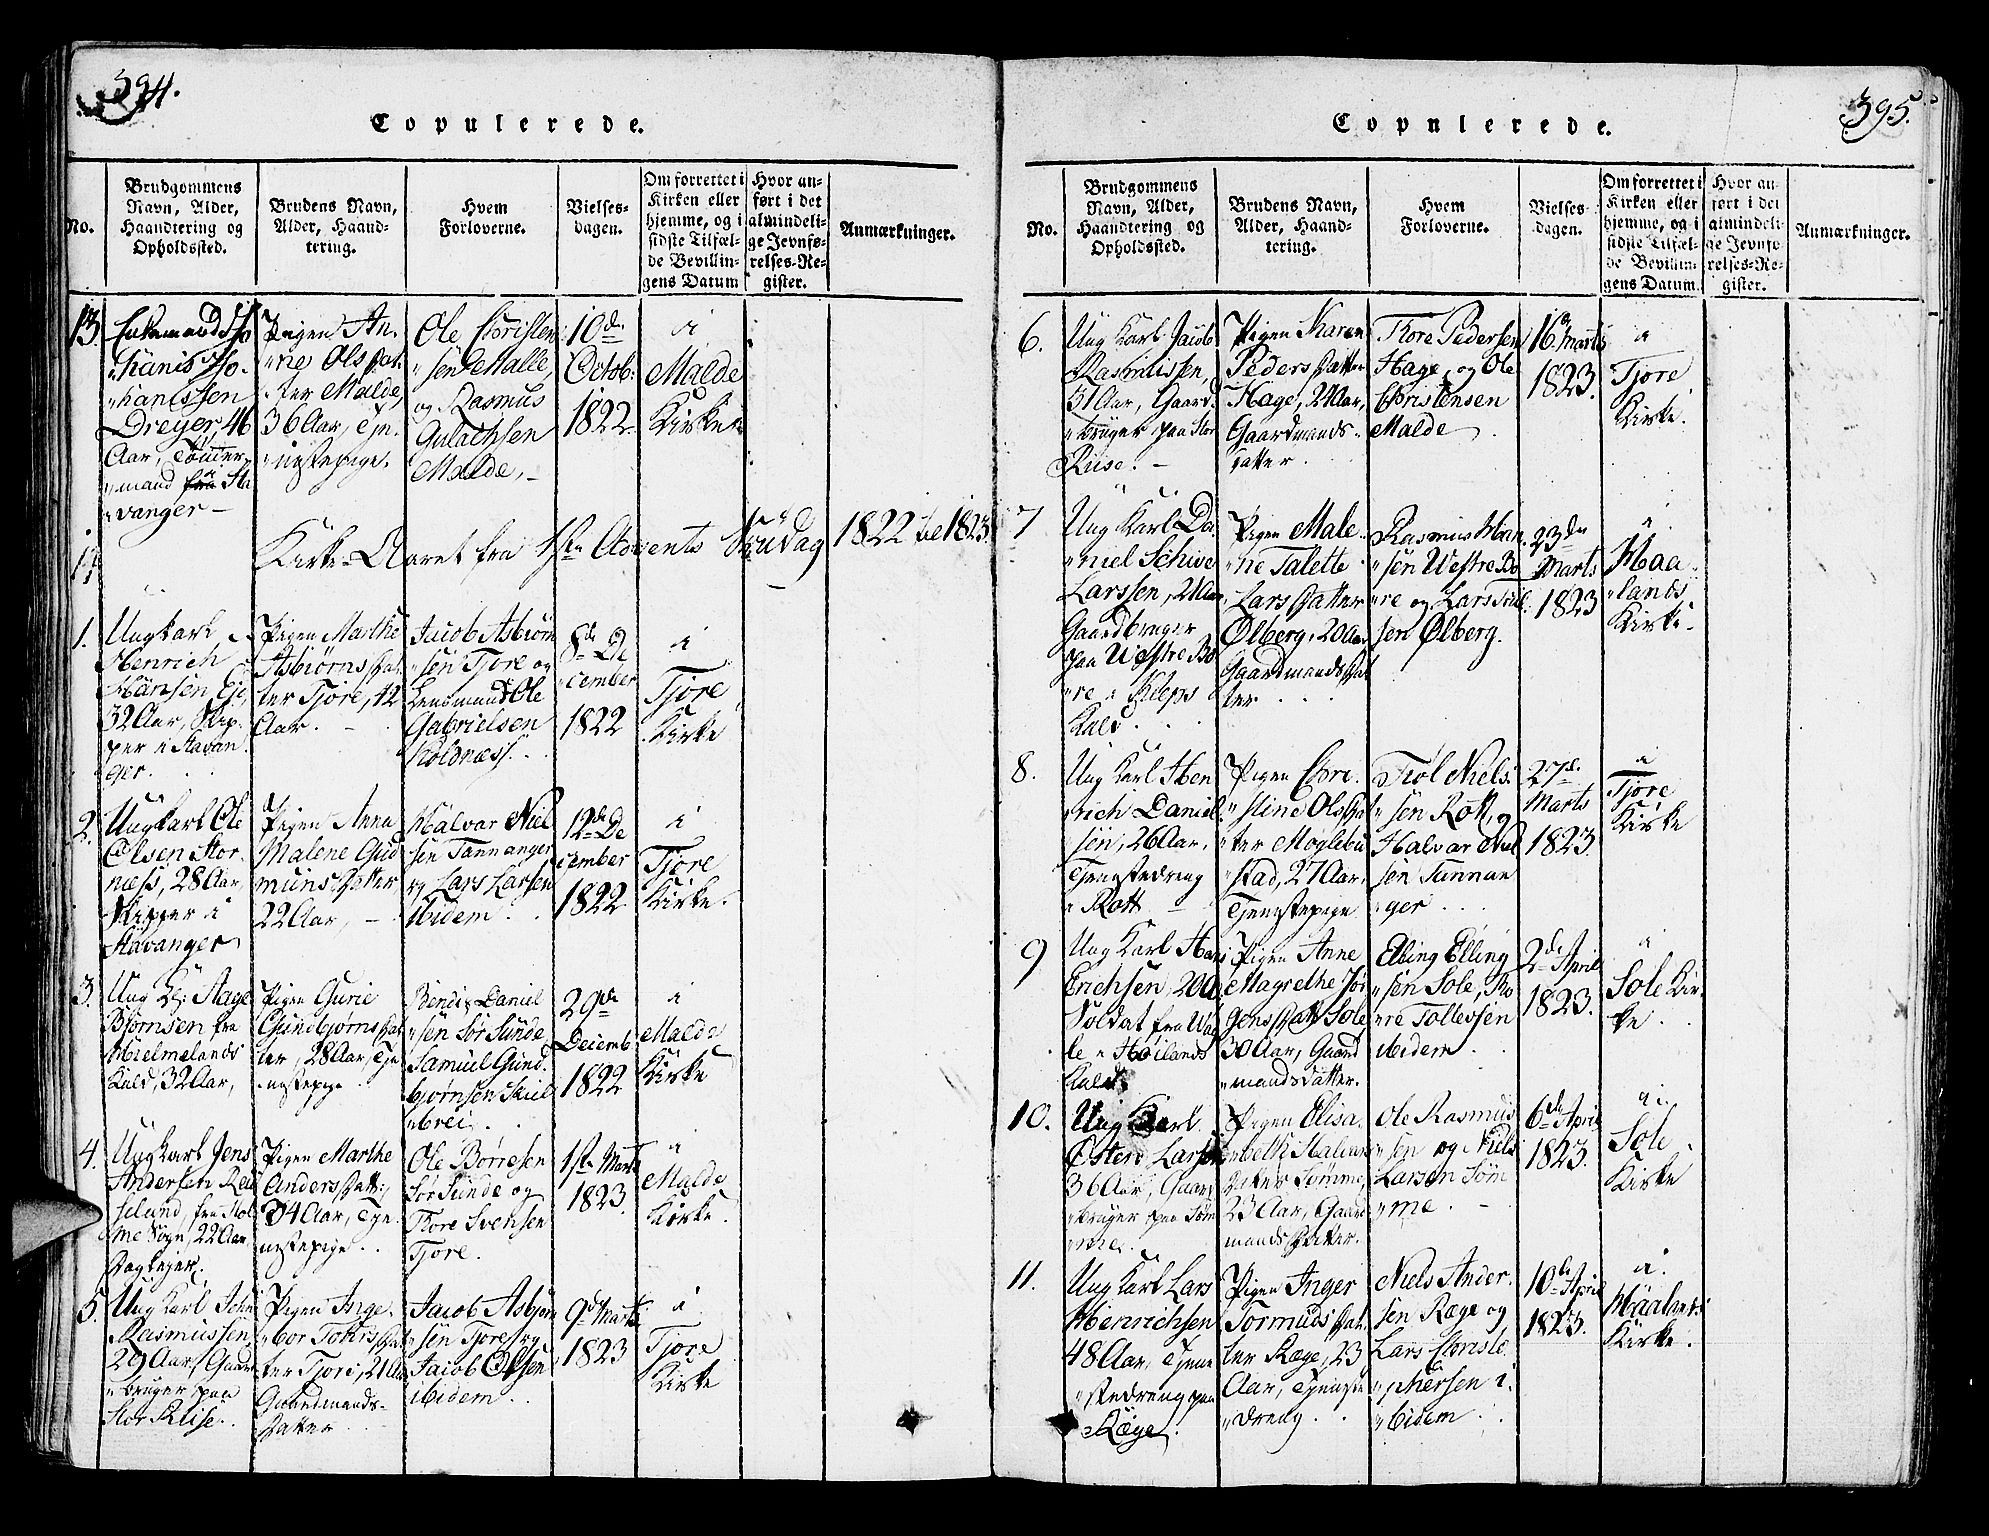 394.
Copulerede.
No.
Brudgommens
Navn, Alder,
Haandtering og
Opholdssted.
Brudens Navn,
Alder, Haand-
tering.
Hvem
Forloverne.
Vielses-
dagen.
Om forrettet i
Kirken eller
hjemme, og i
sidste Tilfæl-
de Bevillin-
gens Datum
Hvor an-
ført i det
almindeli-
ge Jevnfø-
relses-Re-
gister.
Anmærkninger.
13.
Enkemand Jo
"hanis Jo-
"hanissen
Dreyer, 46
Aar, Tømmer
"mand fra i Sta
"vanger -
Pigen An-
"ne Olsdat-
ter Malde,
36 Aar, Tje-
"nestepige.
Ole Christen
"sen Malle,
og Rasmus
Gulachsen
Malde, -
10de
Octob:
1822.
i
Malde
Kirke
Kirke-Aaret fra 1ste Advents Søndag 1822 til 1823
1.
Ungkarl
Henrich
Hansen,
32 Aar, Skip-
per i Stavan
ger.
Pigen Marthe
Asbiørnsdat
ter Tjore, 42
Aar. -
Jacob Asbiørn
"sen Tjore og
Lensmand Ole
Gabrielsen
Kolnæss.
8de De
"cember
1822
i
Tjore
Kirke
2.
Ungkarl Ole
Olsen Stor-
næss, 28 Aar,
Skipper i
Stavanger
Pigen Anna
Malene Gud
munsdatter
22 Aar, -
Halvar Niel
sen Tannanger
og Lars Larsen
ibidem.
12de De
cember
1822
i
Tjore
Kirke.
3.
Ung K: Aage
Bjørnsen fra
Hielmelands
Kald, 32 Aar,
Pigen Gurie
Gundbjørnsdat
ter, 28 Aar, Tje
"nestepige
Bendix Daniel
"sen Sør Sunde
Samuel Gund-
bjørnsen Skiel
"brei.
29de
Decemb:
1822
i
Malde
Kirke
4.
Ungkarl Jens
Andersen
fra Hol-
me Sogn, 22 Aar,
Pigen Marthe
Andersdatt:
34 Aar, Tje-
nestepige.
Ole Børresen
Sør Sunde og
Thore Svensen
Tjore.
1ste Marts
1823.
i
Malde
Kirke.
5.
Ung Karl John
Rasmussen
29 Aar, Gaard
"bruger paa
Stor Riise.
Pigen Inge-
"bor Tohrsdat
ter Tjore, 21 Aar
Gaardmands-
datter
Jacob Asbjørn
"sen Tjore, og
Jacob Olsen
ibidem.
9de Marts
1823
i
Tjore
Kirke
395.
Copulerede.
No.
Brudgommens
Navn, Alder,
Haandtering og
Opholdssted.
Brudens Navn,
Alder, Haand-
tering.
Hvem
Forloverne.
Vielses-
dagen.
Om forrettet i
Kirken eller
hjemme, og i
sidste Tilfæl-
de Bevillin-
gens Datum.
Hvor an-
ført i det
almindeli-
ge Jevnfø-
relses-Re-
gister.
Anmærkninger.
6.
Ung Karl Jacob
Rasmussen,
31 Aar, Gaard-
"bruger paa Stor
Riise. -
Pigen Karen
Pedersdatter
Hage, 24 Aar,
Gaardmands-
datter.
Thore Pedersen
Hage, og Ole
Christensen
Malde
16de Marts
1823.
i
Tjore
Kirke.
7
Ung Karl Da-
"niel Schive
Larssen, 24 Aar
Gaardbruger
paa Westre Bo
"re i Kleps
Kald.
Pigen Male-
"ne Talette
Larsdatter
Ølberg, 20 Aar
Gaardmandsdat
ter
Rasmus Han-
"sen Westre Bo
"re og Lars
sen Ølberg.
23de
Marts
1823
i
Maa-
"lands
Kirke.
8.
Ung Karl Hen
"rich Daniel
sen, 26 Aar,
Tjenestedreng
i Rott -
Pigen Chri-
"stine Olsdat
"ter Møglebu
"stad, 27 Aar,
Tjenestepige
Trøl Niels-
"sen Rott, og
Halvar Niel
sen Tannan
"ger
27de
Marts
1823.
i
Tjore
Kirke
9
Ung Karl Hans
Erichsen, 20 A,
Soldat fra
i Høilands
Kald.
Pigen Anne
Magrethe Jør
gensdatt Sole
30 Aar, Gaard
"mandsdatter.
Elling Elling
"sen Sole, Bo
"re Tollevsen
ibidem.
2de April
1823.
i
Sole Kir-
ke.
10.
Ung Karl
Osten Larsen
36 Aar, Gaard
"bruger paa Søm
"me.
Pigen Elisa-
"beth Halvar
datter Sømme,
23 Aar, Gaard
mandsdatter.
Ole Rasmus
"sen og Niels
Larsen Søm
"me.
6de April
1823.
i
Sole
Kirke
11.
Ung Karl Lars
Henrichsen
48 Aar, Tjene
"stedreng paa
Ræge.
Pigen Inger
Tormudsdat-
ter Ræge, 23
Aar, Tjeneste
"dreng.
Niels Ander-
sen Ræge og
Lars Christo
"phersen i-
"bidem.
10de April
1823.
i
Maalands
Kirke.